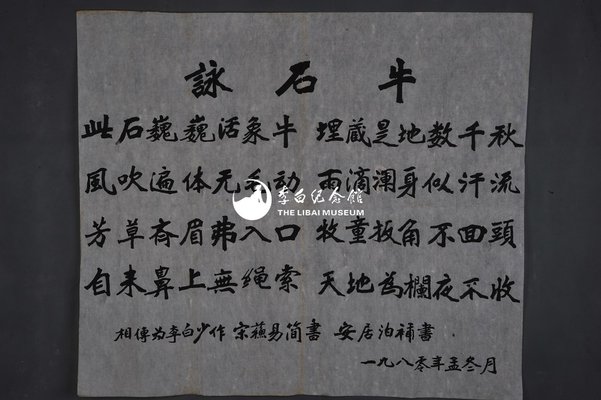 詠石牛
此石巍巍活象牛 埋藏是地数千秋
風吹遍体无毛动 雨滴身似汗流
芳草齐眉弗入口 牧童扳角不回頭
自来鼻上無绳索 天地為欄夜不收
相傳为李白少作 宋蘇易简書 安居泊補書
一九八零年孟冬月
李白纪念館
THE LIBAI MUSEUM